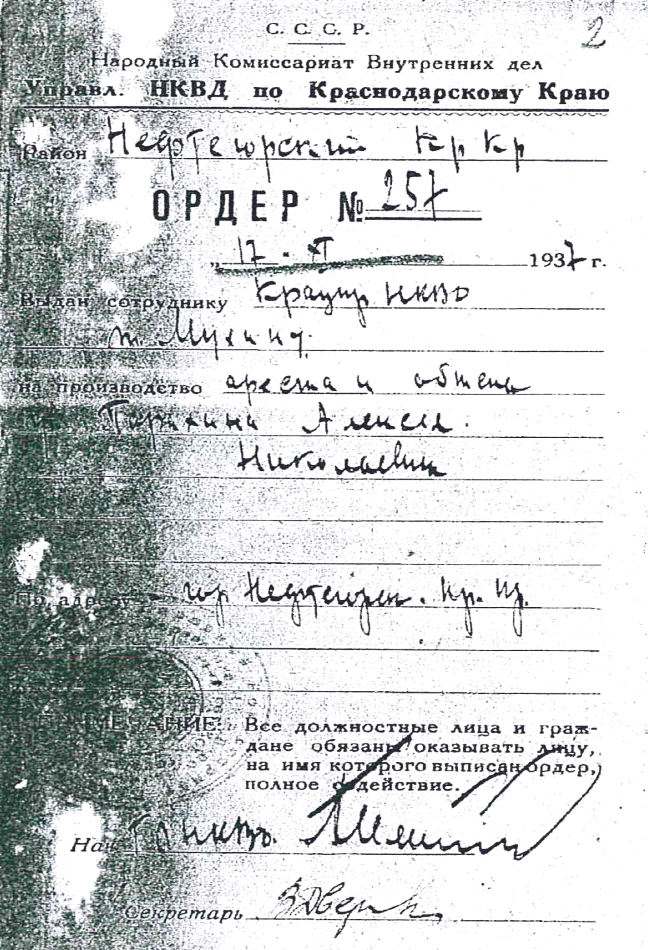 С. С. С. Р.
2
Народный Комиссариат Внутренних дел
Управл. НКВД по Краснодарскому Краю
Район Нефтегорский Кр Кр
ОРДЕР № 257
„ 17 - XI 1937 г.
Выдан сотруднику НКВД
т. Мухину
на производство ареста и обыска
Алексея
Николаевича
По адресу гор Нефтегорск. Кр. Кр.
ПРИМЕЧАНИЕ: Все должностные лица и граж-
дане обязаны оказывать лицу,
на имя которого выписан ордер,
полное содействие.
Нач НКВД
Секретарь